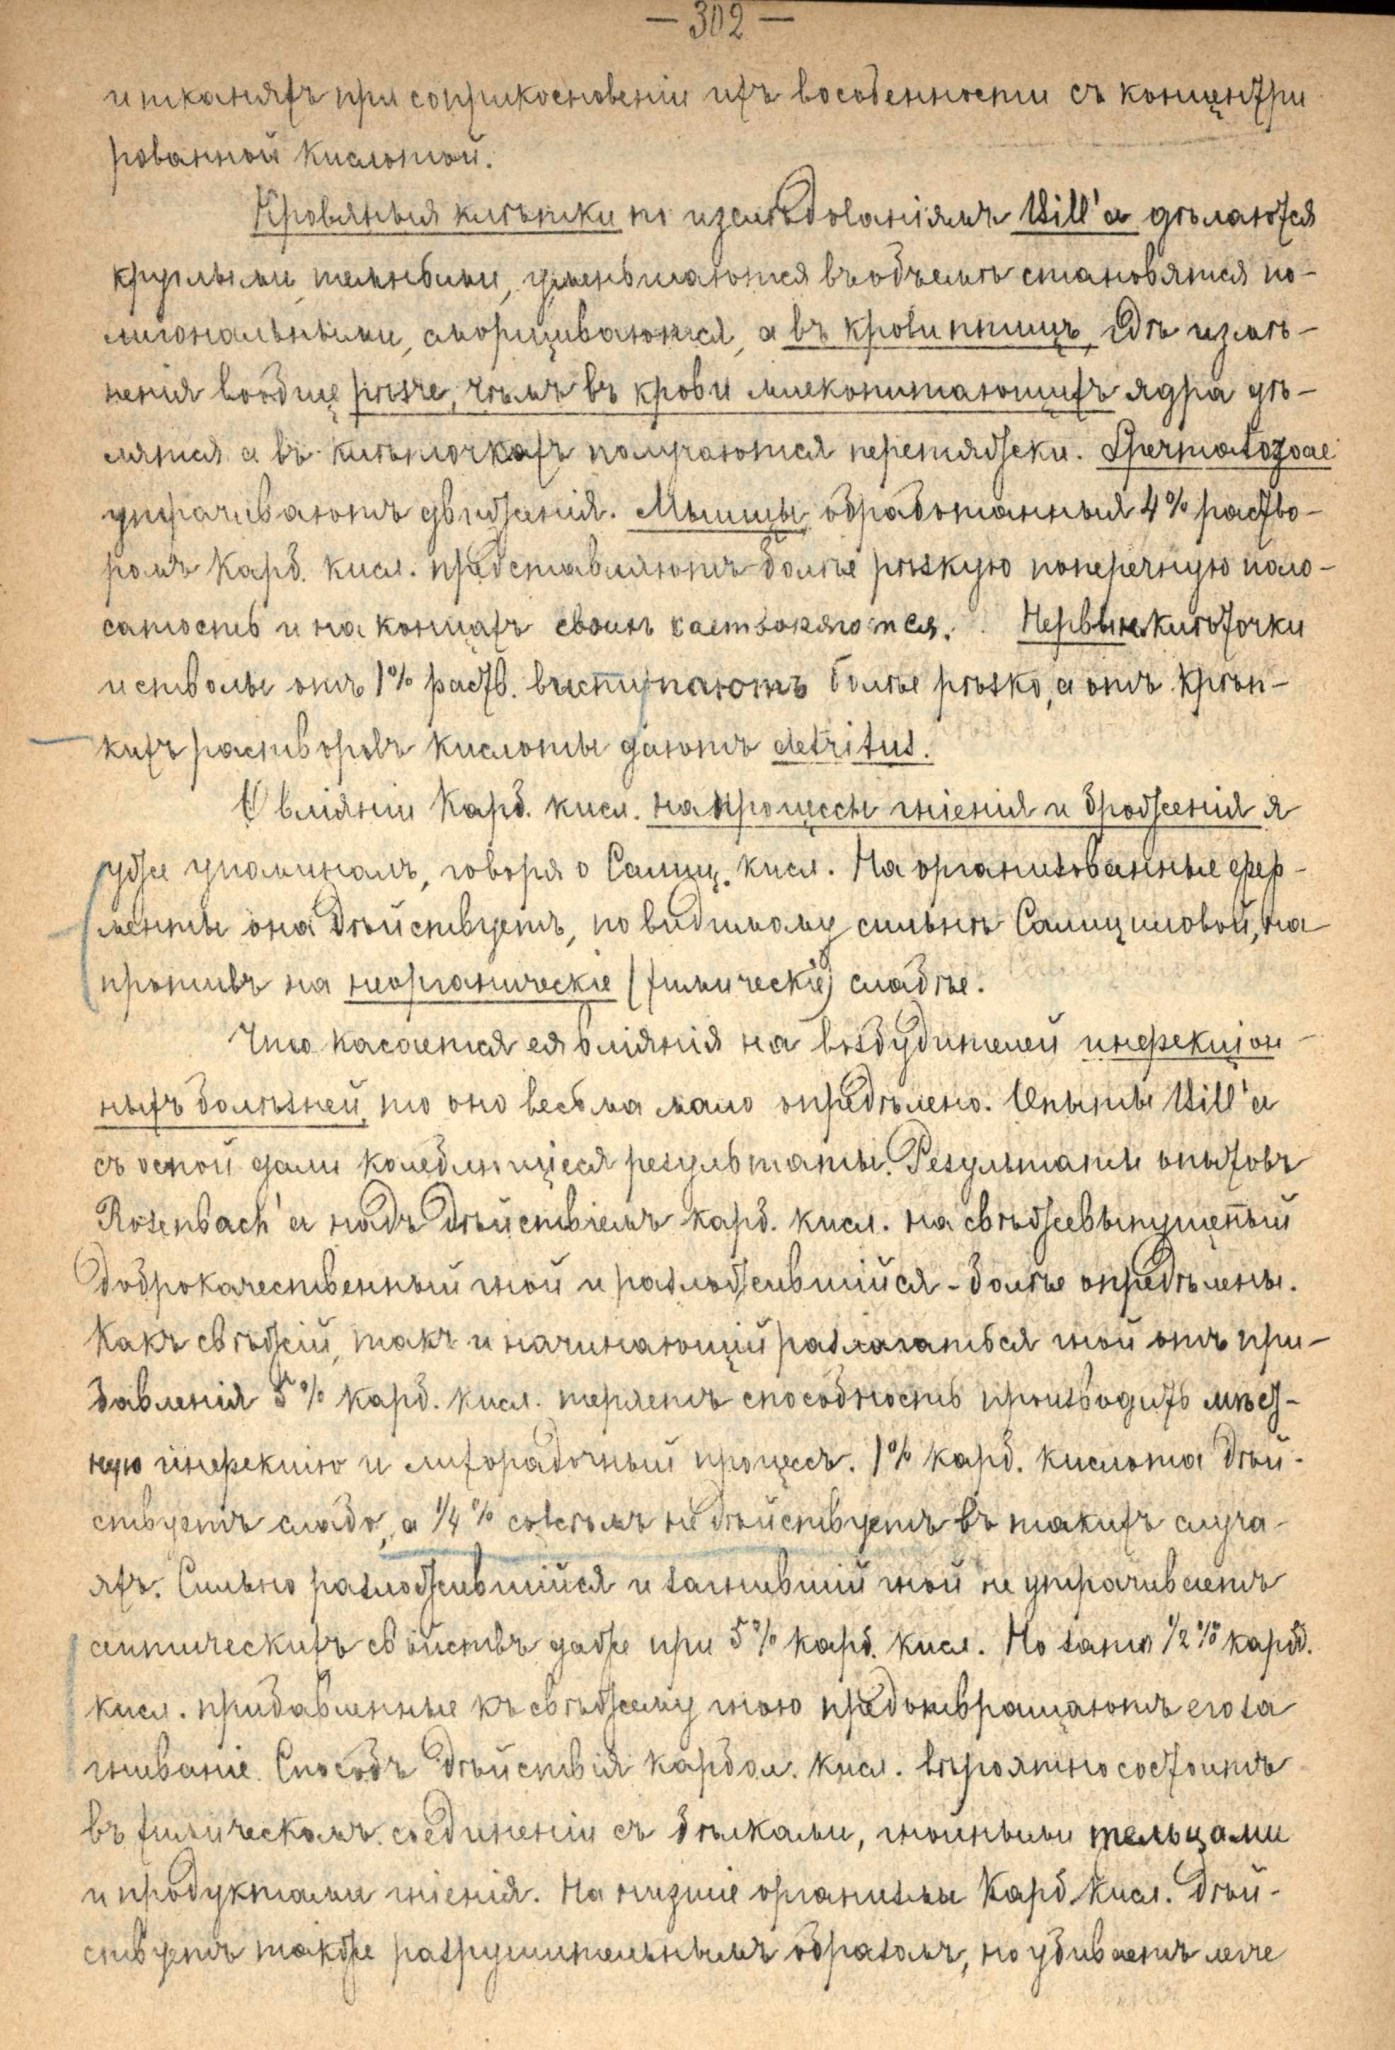 — 302 —
и тканяхъ при соприкосновеніи ихъ вособенности съ концентри
рованной кислотой.
Кровяныя клѣтки по изслѣдованіямъ Will'а дѣлаются
круглыми, темными, уменьшаются въ объемѣ становятся по-
лигональными, сморщиваются, а въ крови птицъ, гдѣ измѣ-
ненія вообще рѣзче, чѣмъ въ крови млекопитающихъ ядра дѣ-
лятся а въ клѣточкахъ получаются перетяжеки. Spermatozoae
утрачиваютъ движенія. Мышцы обработанныя 4% раство-
ромъ карб. кисл. представляютъ болѣе рѣзкую поперечную поло-
сатость и на концахъ своихъ
Нервныя клѣточки
и стволы отъ 1% раств. выступаютъ болѣе рѣзко, а отъ крѣп-
кихъ растворовъ кислоты даютъ detritus.
О вліяніи Карб. кисл. на процессы гніенія и броженія я
уже упоминалъ, говоря о Салиц. кисл. На организованные фер-
менты она дѣйствуетъ, повидимому сильнѣе Салициловой, на
противъ на неорганическіе (химическіе) слабѣе.
Что касается ея вліянія на возбудителей инфекціон-
ныхъ болѣзней, то оно весьма мало опредѣлено. Опыты Will'а
съ оспой дали колеблющіеся результаты. Результаты опытовъ
Rosenbach'а надъ дѣйствіемъ карб. кисл. на свѣжевыпущенный
доброкачественный гной и разложившійся - болѣе опредѣлены.
Какъ свѣжій, такъ и начинающій разлагаться гной отъ при-
бавленія 5% карб. кисл. теряетъ способность производить мѣст-
ную инфекцію и лихорадочный процессъ. 1% карб. кислота дѣй-
ствуетъ слабо, а 1/4% совсѣмъ не дѣйствуетъ въ такихъ случа-
яхъ. Сильно разложившійся и загнившій гной не утрачиваетъ
септическихъ свойствъ даже при 5% карб. кисл. Но зато 1/2% карб.
кисл. прибавленные къ свѣжему гною предотвращаютъ его за
гниваніе. Способъ дѣйствія карбол. кисл. вѣроятно состоитъ
въ химическомъ соединеніи съ бѣлками, гнойными тельцами
и продуктами гніенія. На низшіе организмы Карб. Кисл. дѣй-
ствуетъ также разрушительнымъ образомъ, но убиваетъ легче